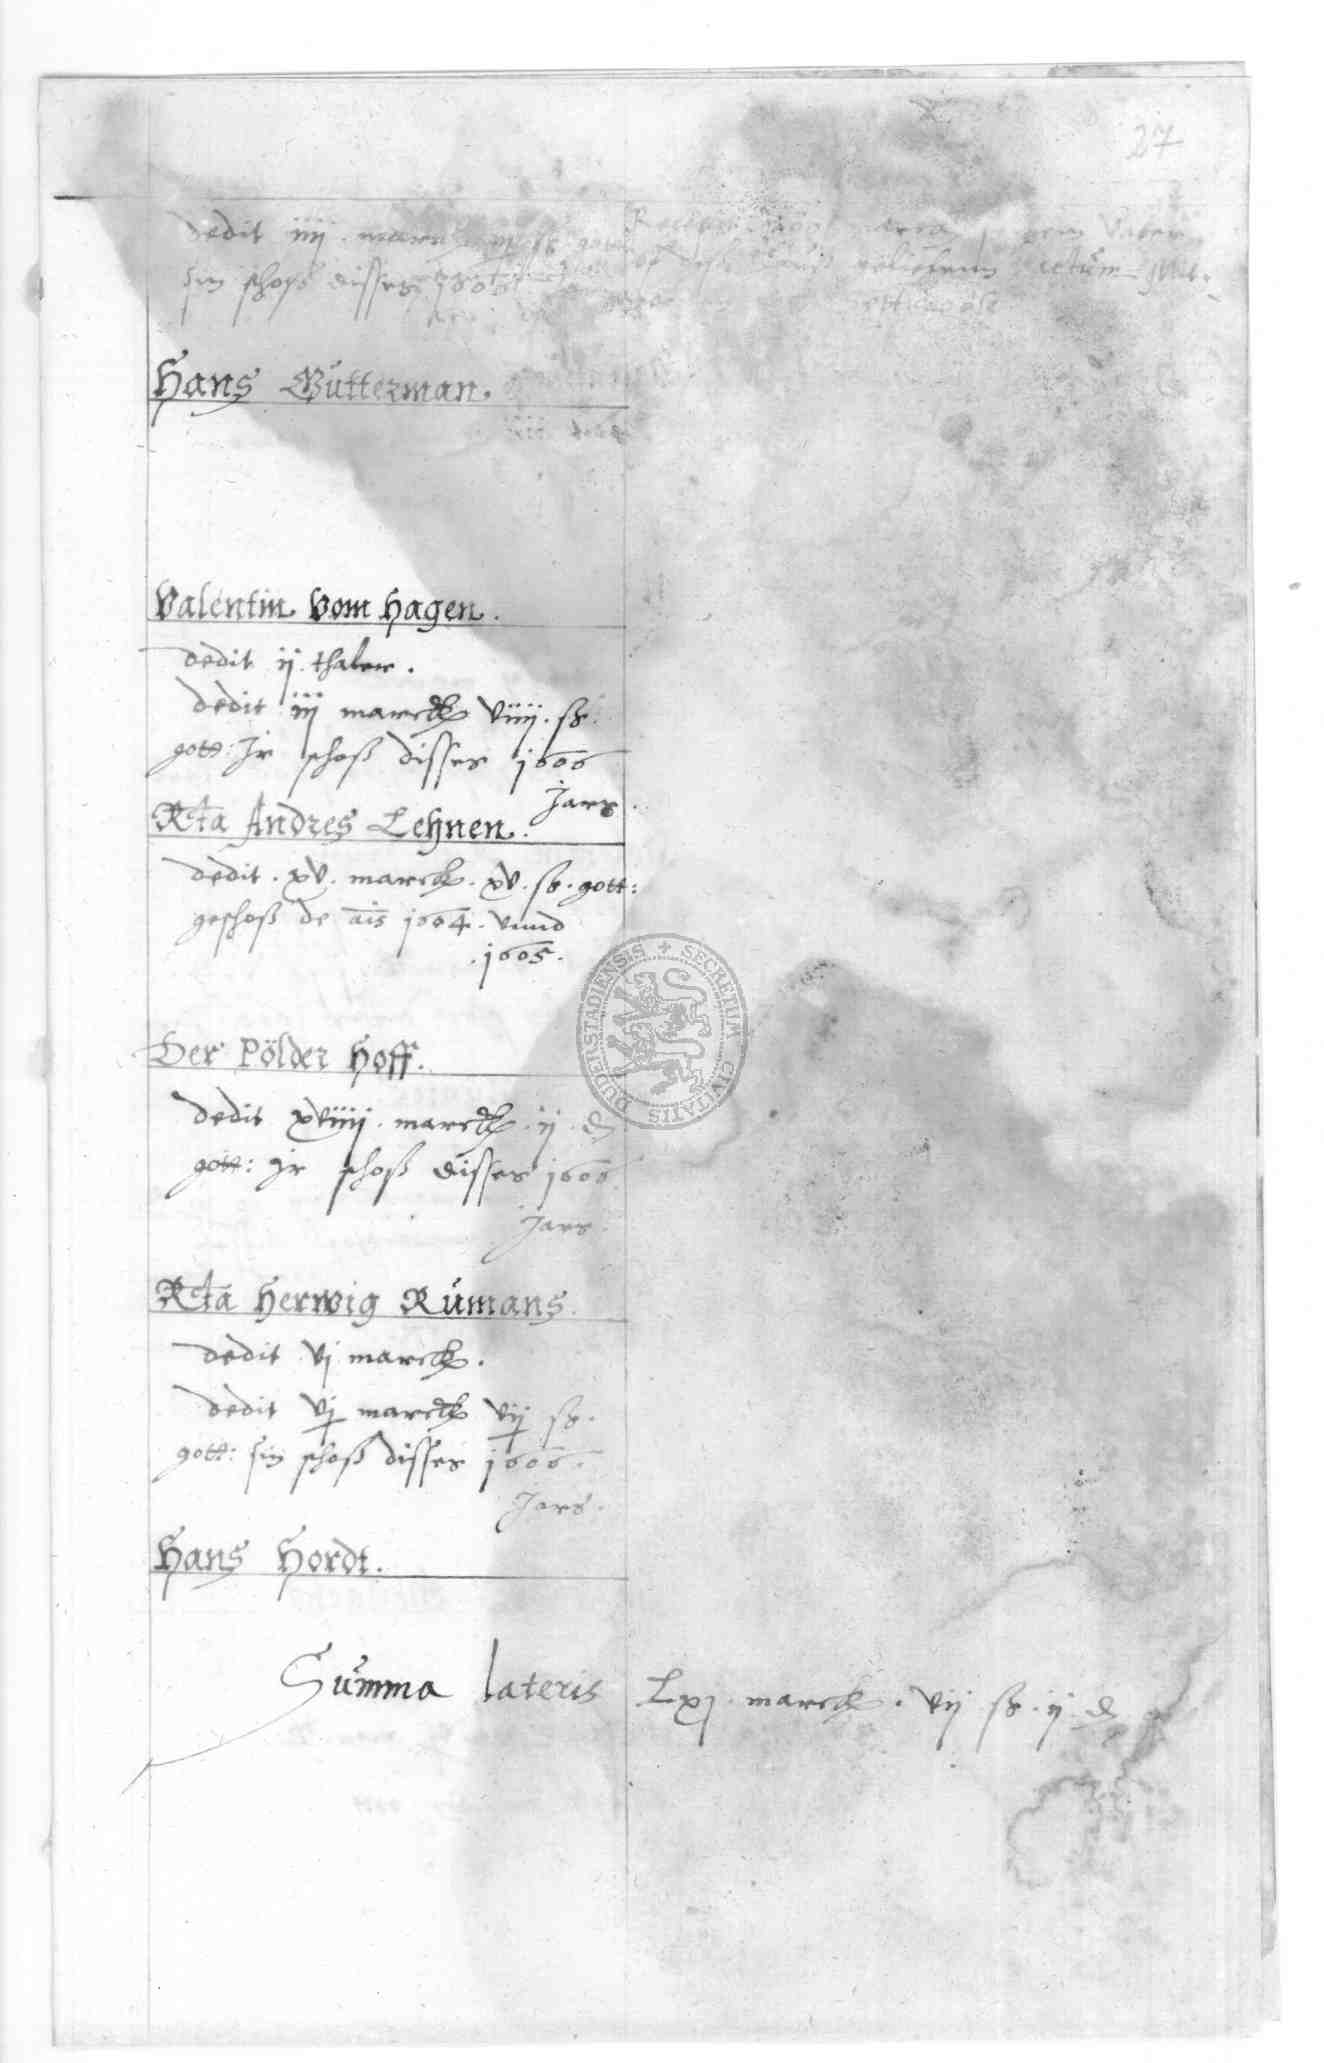 27
dedit iiij marck
sin schoß disses 1606
Hans Gütterman.
Valentin vom Hagen.
dedit ij thaler.
dedit iij marck viiij ß
gott: Ir schoß disses 1606
Jars.
Rta Andres Lehnen.
dedit . xv . marck . xv . ß . gott:
geschoß de ais 1604 . vnnd
. 1605 .
Der Pölder Hoff.
dedit xviiij . marck . ij . ₰
gott: Ir schoß disses 1606
Jars.
Rta Herwig Rümans.
dedit vj marck.
dedit vj marck vij ß.
gott: sin schoß disses 1606.
Jars.
Hans Hordt.
Summa lateris Lxj . marck . vij ß . ij ₰
SECRETUM CIVITATIS DUDERSTADIENSIS